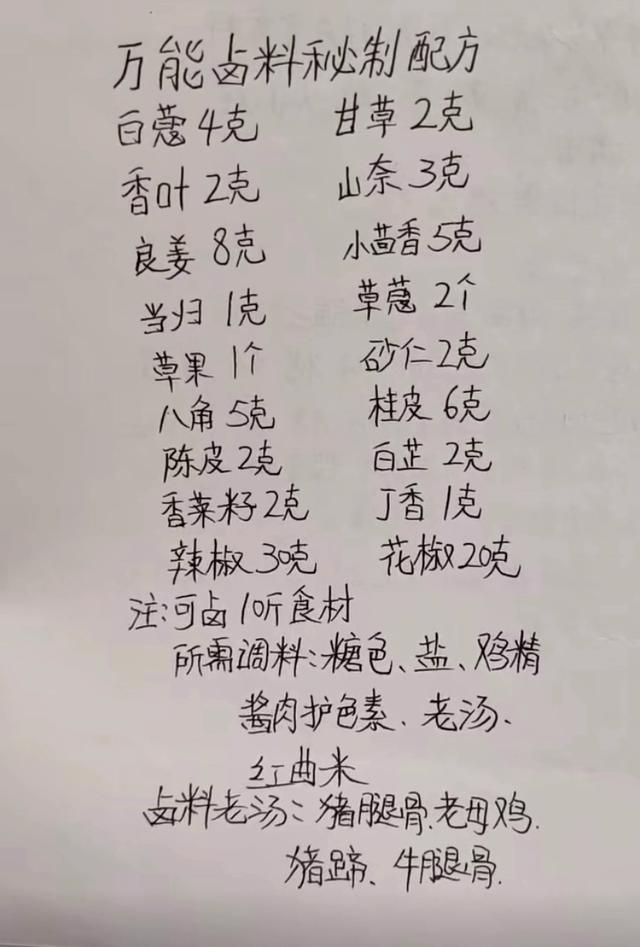 万能卤料秘制配方
白蔻4克 甘草2克
香叶2克 山奈3克
良姜8克 小茴香5克
当归1克 草蔻2个
草果1个 砂仁2克
八角5克 桂皮6克
陈皮2克 白芷2克
香菜籽2克 丁香1克
辣椒30克 花椒20克
注:可卤10斤食材
所需调料:糖色、盐、鸡精
酱肉护色素、老汤、
红曲米
卤料老汤:猪腿骨、老母鸡、
猪蹄、牛腿骨.